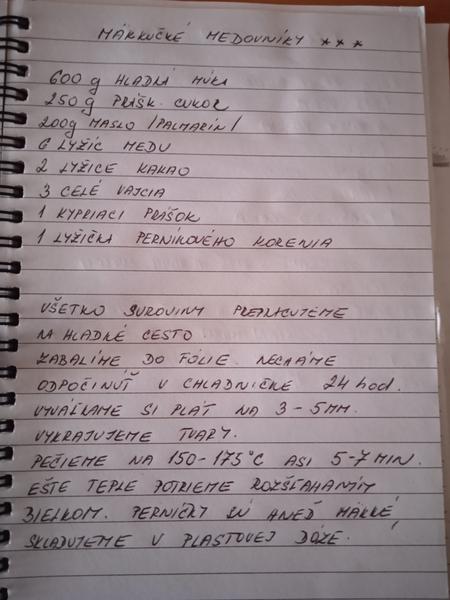 MÄKKUČKÉ MEDOVNÍKY ***
600 g HLADKÁ MÚKA
250 g PRÁŠK. CUKOR
200g MASLO /PALMARÍN/
6 LYŽÍC MEDU
2 LYŽICE KAKAO
3 CELÉ VAJCIA
1 KYPRIACI PRÁŠOK
1 LYŽIČKA PERNÍKOVÉHO KORENIA
VŠETKO SUROVINY PREPRACUJEME
NA HLADKÉ CESTO.
ZABALÍME DO FÓLIE. NECHÁME
ODPOČINÚŤ V CHLADNIČKE 24 hod.
VYVÁĽKAME SI PLÁT NA 3-5MM.
VYKRAJUJEME TVARY.
PEČIEME NA 150-175°C ASI 5-7 MIN.
EŠTE TEPLÉ POTRIEME ROZŠĽAHANÝM
BIELKOM. PERNÍČKY SÚ HNEĎ MÄKKÉ,
SKLADUJEME V PLASTOVEJ DÓZE.